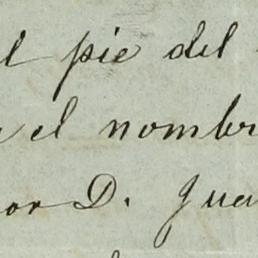 al pie del
el nombr
or D. Jua